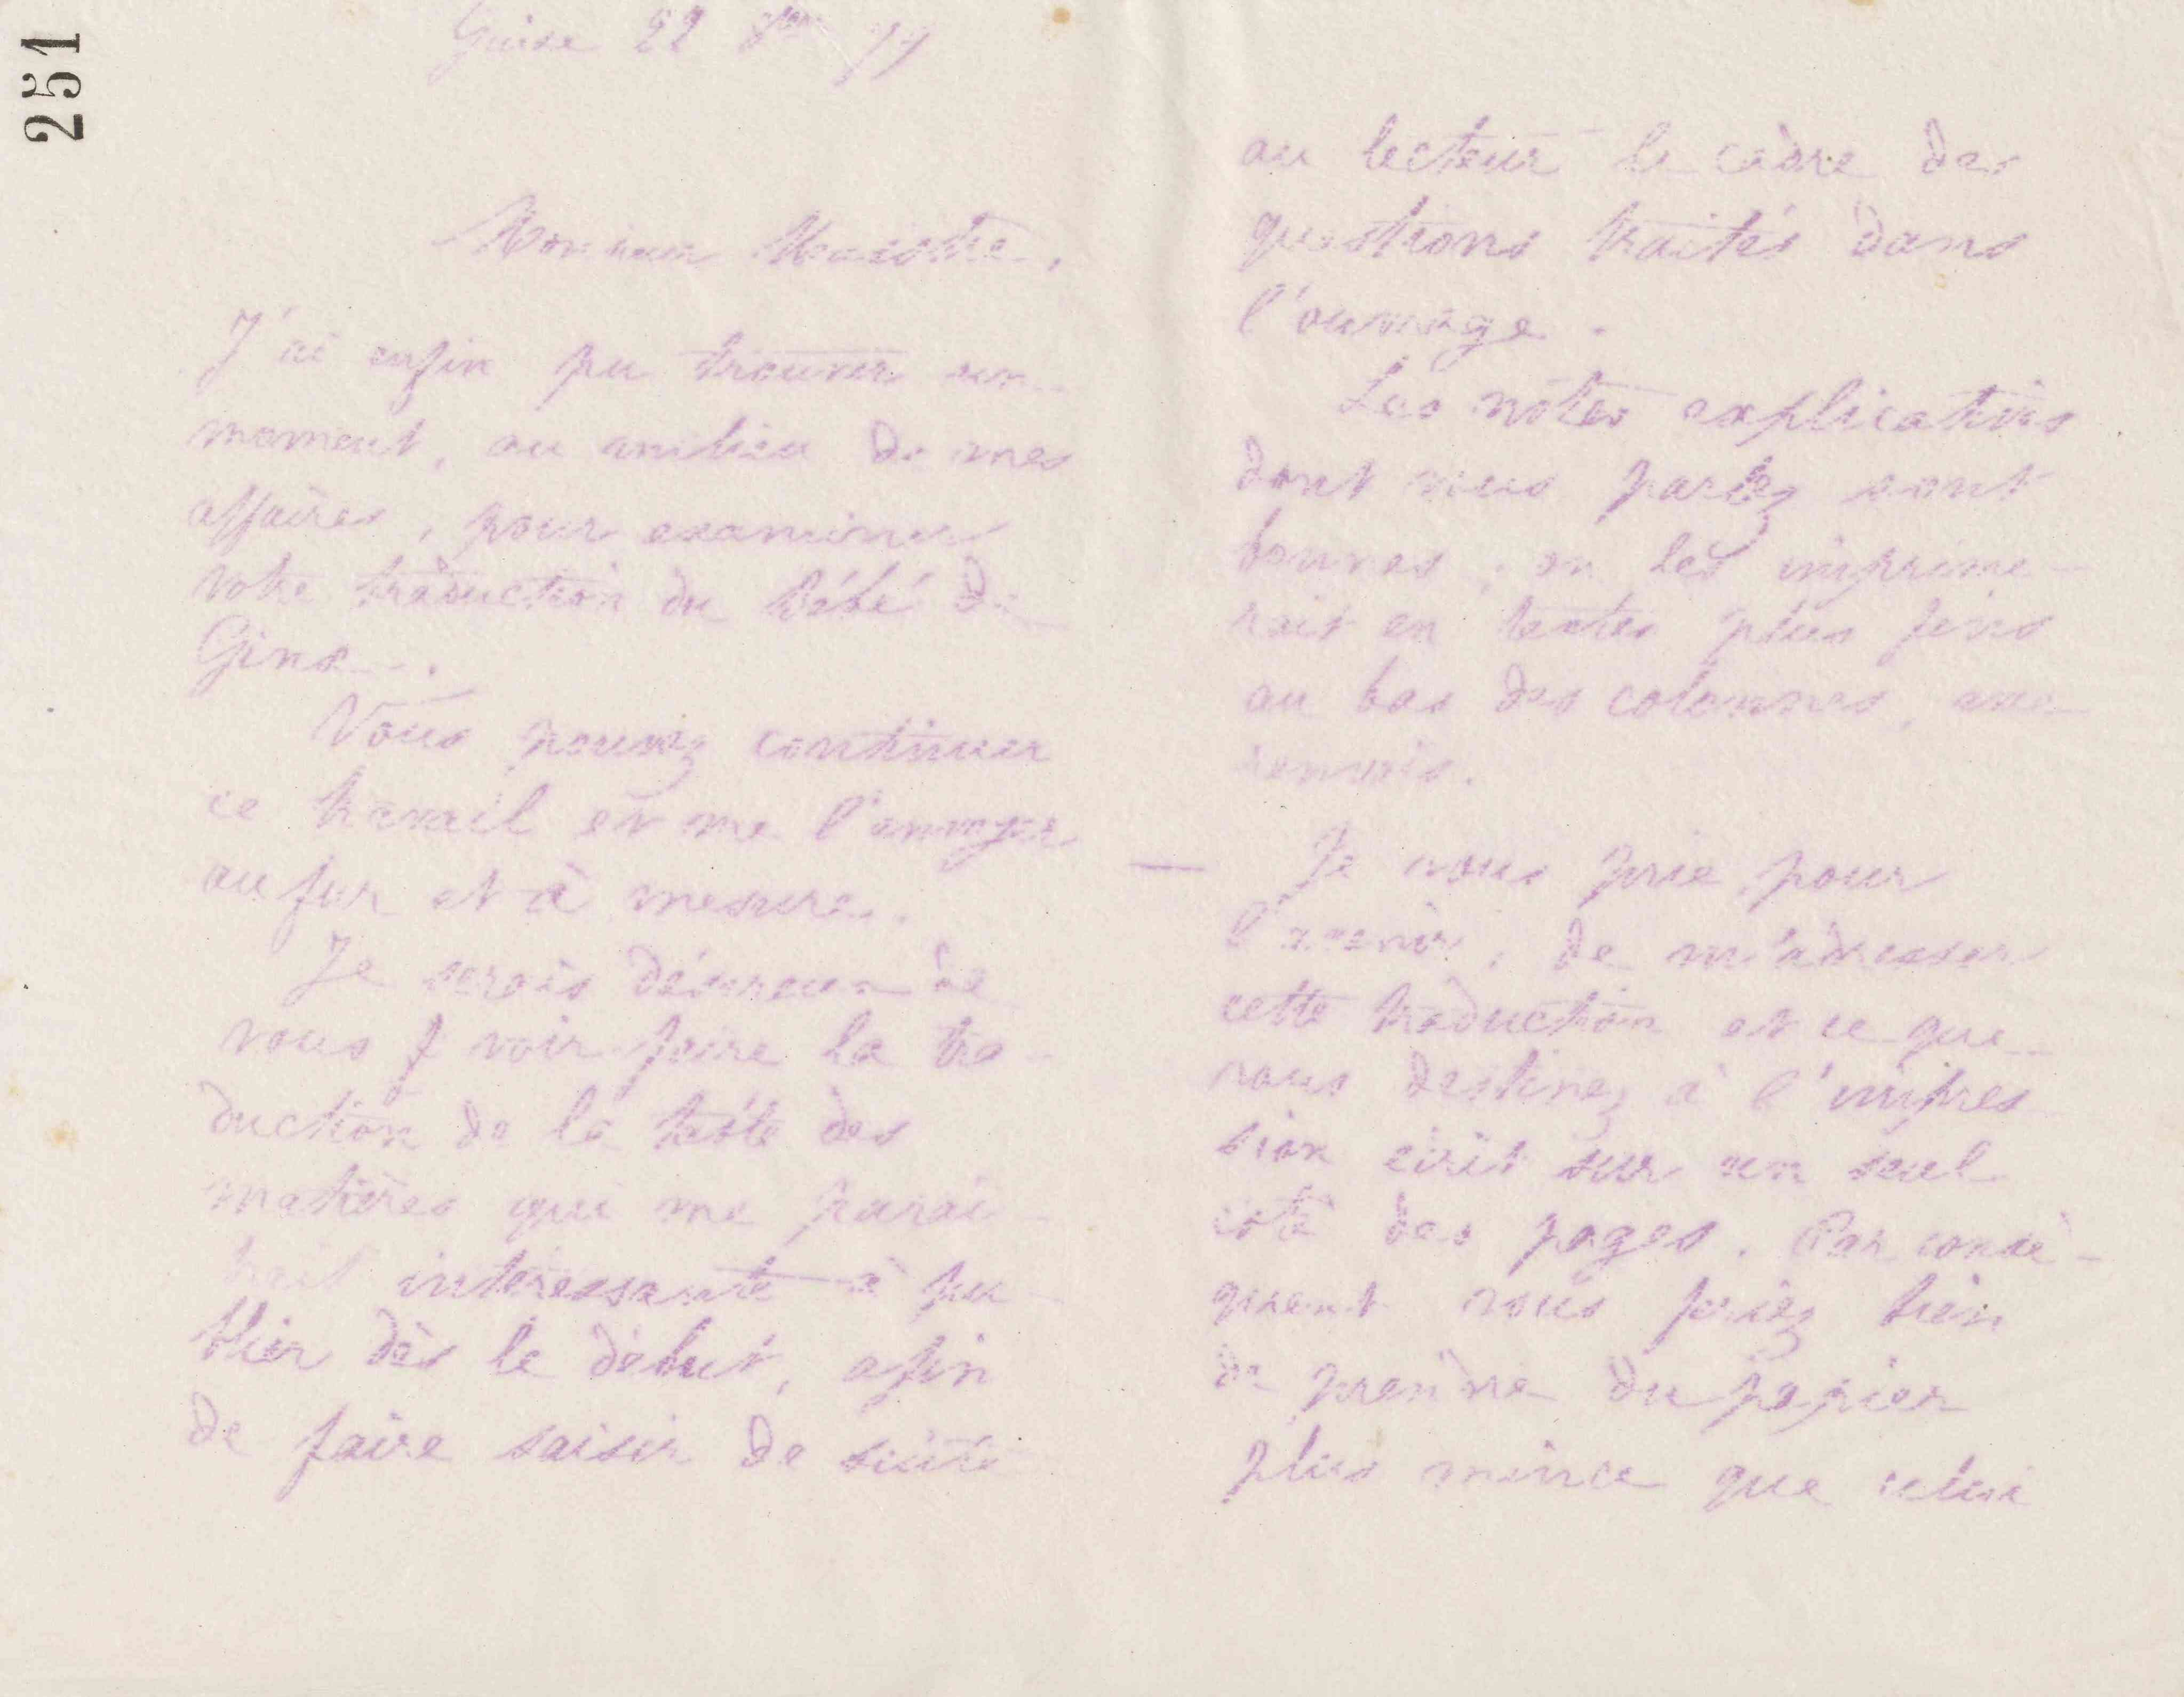 251
Guise 22 8bre 79
Monsieur
J'ai enfin pu trouver un
moment, au milieu de mes
affaires, pour examiner
votre traduction du bébé de
Gins.
Vous pouvez continuer
ce travail et me l'envoyer
au fur et à mesure.
Je serais désireux de
vous y voir faire la tra-
duction de la table des
matières qui me parai-
trait intéressante à pu-
blier dès le début, afin
de faire saisir de suite
au lecteur le cadre des
questions traités dans
l'ouvrage.
Les notes explicatives
dont vous parlez sont
bonnes; on les imprime-
rait en textes plus fins
au bas des colonnes, avec
renvois.
— Je vous prie, pour
l'avenir, de m'adresser
cette traduction et ce que
vous destinez à l'impres
sion écrit sur un seul
côté des pages. Par consé-
quent vous feriez bien
de prendre du papier
plus mince que celui